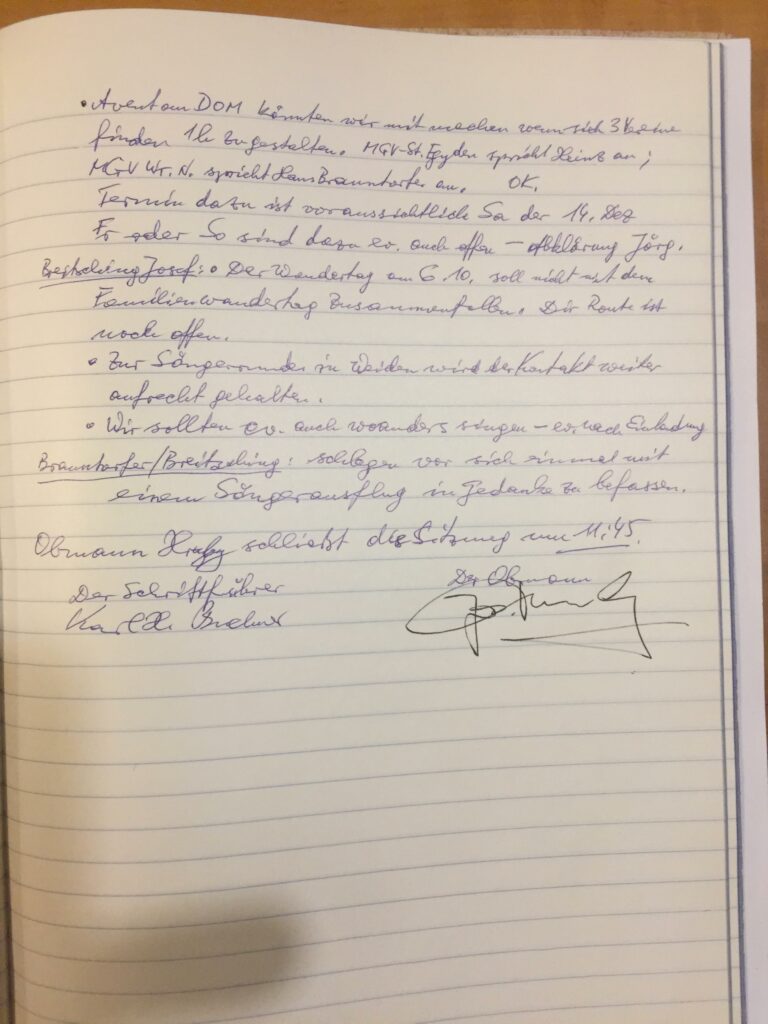 • Avent am DOM könnten wir mit machen wenn sich 3 Vereine
finden 1h zu gestalten. MGV-St. Egyden spricht Heinz an;
MGV Wr. N. spricht Hans Brauntorfer an. OK.
Termin dazu ist voraussichtlich Sa der 14. Dez
Fr oder So sind dazu ev. auch offen – Abklärung Jörg.
Breitsching Josef: • Der Wandertag am 6.10. soll nicht mit dem
Familienwandertag zusammenfallen. Die Route ist
noch offen.
• Zur Sängerrunde in Weiden wird der Kontakt weiter
aufrecht gehalten.
• Wir sollten ev. auch woanders singen – ev. nach Einladung
Brauntorfer/Breitsching: schlagen vor sich einmal mit
einem Sängerausflug in Gedanke zu befassen.
Obmann Hruby schließt die Sitzung um 11:45.
Der Schriftführer Der Obmann
Karl H.